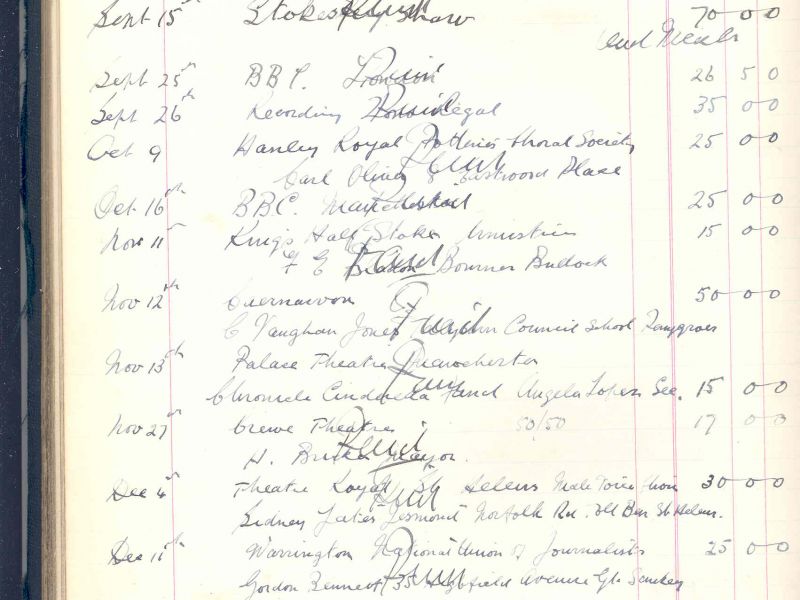 Sept 15th Stokes Shaw 70 0 0
and Meals
Sept 25th BBC. London 26 5 0
Sept 26th Recording Regal 35 0 0
Oct 9 Hanley Royal Potteries Choral Society 25 0 0
Carl Oliver Eastwood Place
Oct 16th BBC. 25 0 0
Nov 11th Kings Hall Stoke 15 0 0
Bourner Bullock
Nov 12th Caernarvon 50 0 0
C Vaughan Jones Council School
Nov 13th Palace Theatre Manchester
Chronicle Cinderella Fund Angela Lopers Sec. 15 0 0
Nov 27th Crewe Theatre 50/50 17 0 0
H. Mayor.
Dec 4th Theatre Royal St Helens Male Voice Choir 30 0 0
Sidney Norfolk Rd. St Helens.
Dec 11th Warrington National Union of Journalists 25 0 0
Gordon Bennett 35 Avenue Gt Sankey